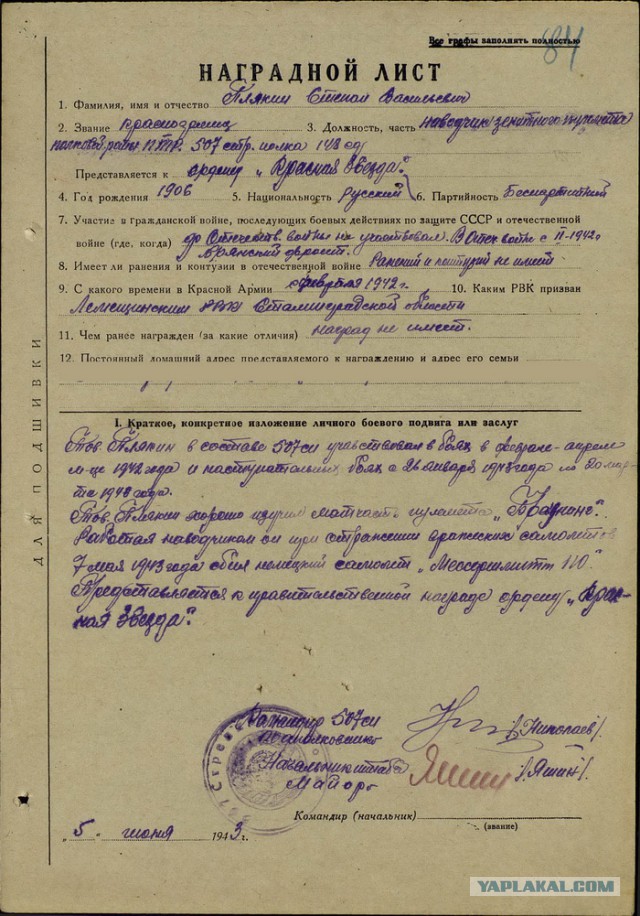 Все графы заполнять полностью
84
НАГРАДНОЙ ЛИСТ
1. Фамилия, имя и отчество Плякин Степан Васильевич
2. Звание красноармеец 3. Должность, часть наводчик зенитного пулемета
507 стр. полка 148 сд
Представляется к ордену „Красная Звезда".
4. Год рождения 1906 5. Национальность русский 6. Партийность Беспартийный
7. Участие в гражданской войне, последующих боевых действиях по защите СССР и отечественной
войне (где, когда) до Отечеств. войны не участвовал. В Отеч. войне с II-1942г
Брянский фронт.
8. Имеет ли ранения и контузия в отечественной войне Ранений и контузий не имеет
9. С какого времени в Красной Армии с февраля 1942 г. 10. Каким РВК призван
РВК Сталинградской области
11. Чем ранее награжден (за какие отличия) наград не имеет.
12. Постоянный домашний адрес представляемого к награждению и адрес его семьи
ДЛЯ ПОДШИВКИ
I. Краткое, конкретное изложение личного боевого подвига или заслуг
Тов. Плякин в составе 507 сп участвовал в боях в феврале-апреле
м-це 1942 года и наступательных боях с 26 января 1943 года по 20 мар-
та 1943 года.
Тов. Плякин хорошо изучил матчасть пулемета „Браунинг".
Работая наводчиком он при отражении вражеских самолетов
7 мая 1943 года сбил немецкий самолет „Мессершмитт 110".
Представляется к правительственной награде ордену „Крас-
ная Звезда".
Командир 507 сп
подполковник /Николаев/.
Начальник штаба
Майор /Яшин/.
Командир (начальник)
(звание)
„5" июня 1943 г.
YAPLAKAL.COM